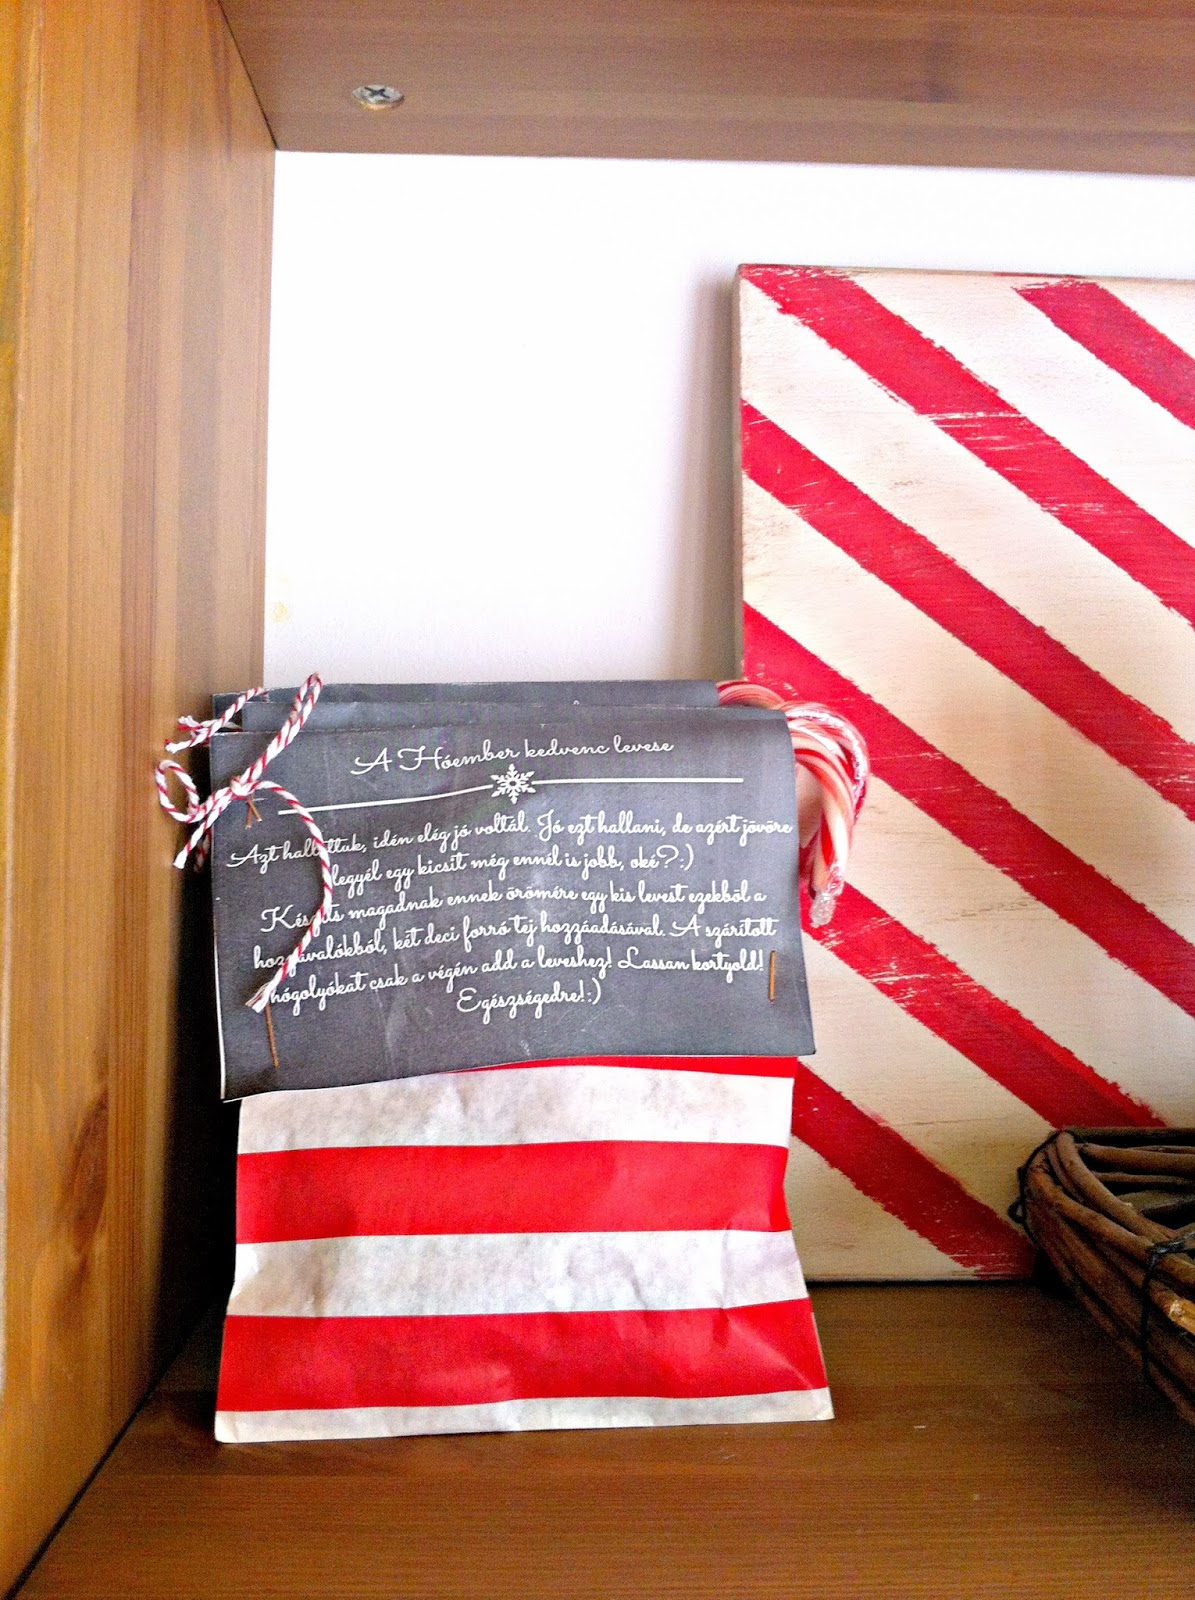 A Hóember kedvenc levese
Azt hallottuk, idén elég jó voltál. Jó ezt hallani, de azért jövőre
legyél egy kicsit még ennél is jobb, oké?:)
Készíts magadnak ennek örömére egy kis levest ezekből a
hozzávalókból, két deci forró tej hozzáadásával. A szárított
hógolyókat csak a végén add a leveshez! Lassan kortyold!
Egészségedre!:)